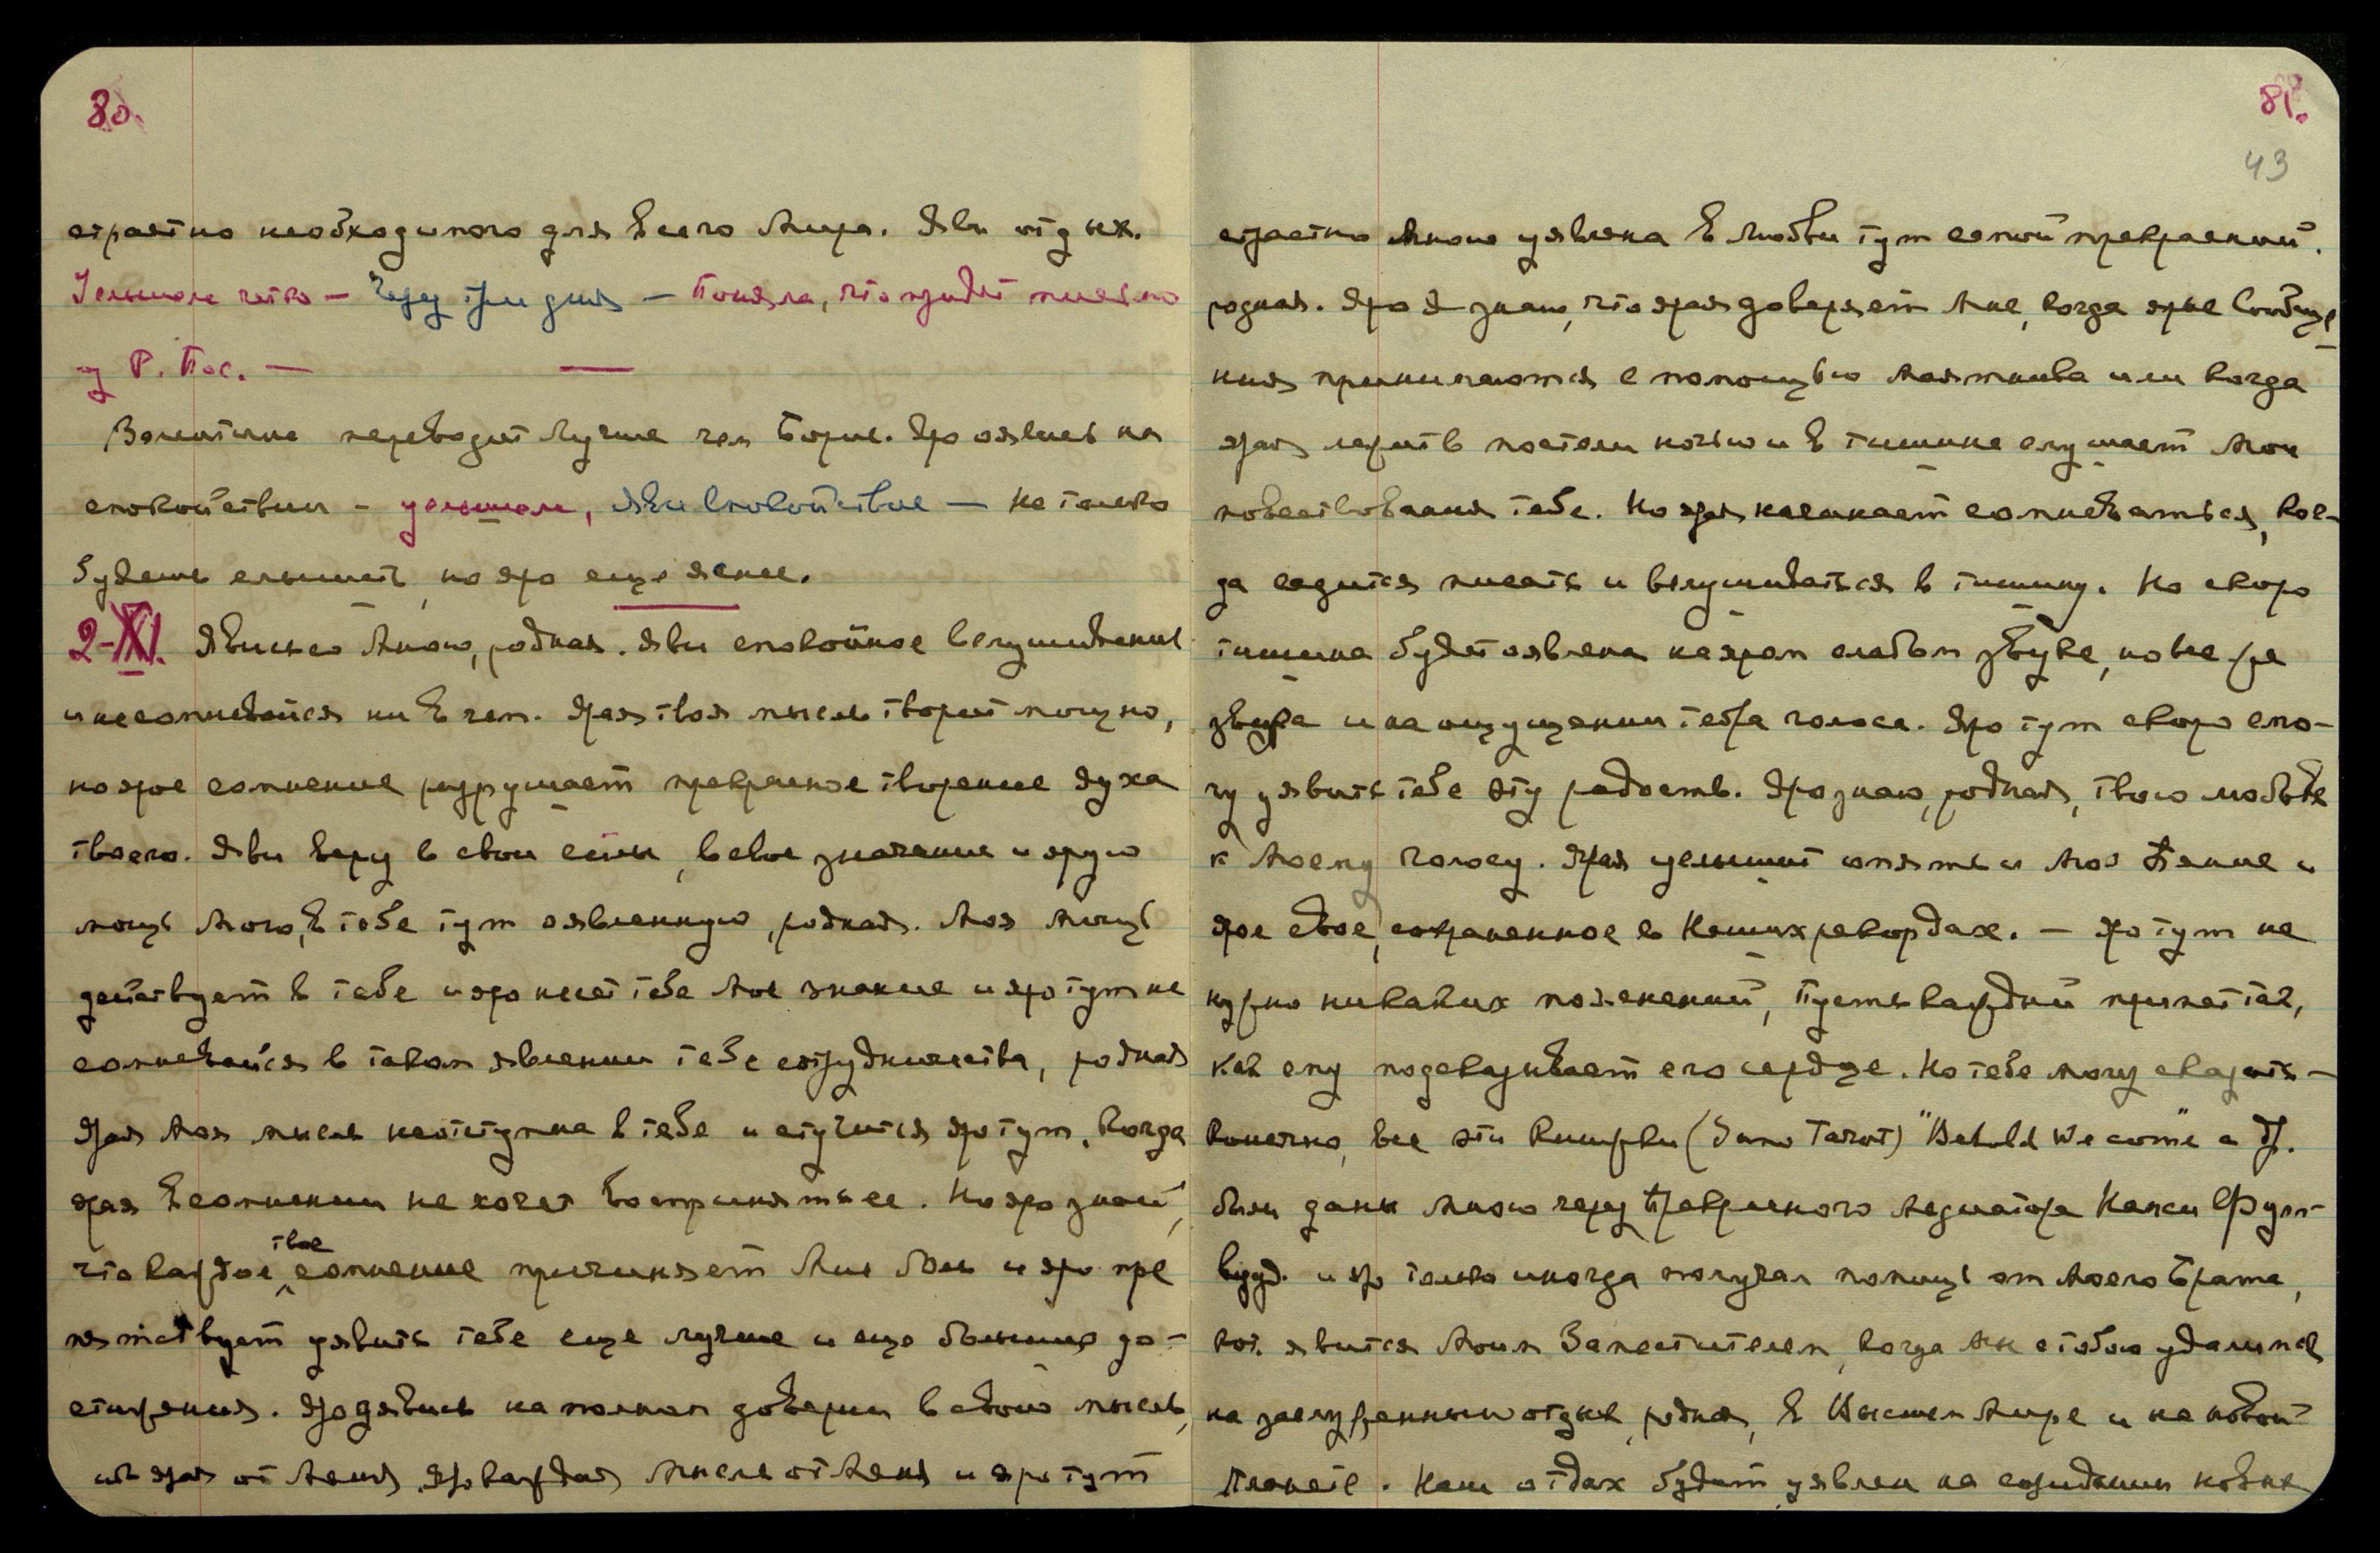 80.
страстно необходимого для всего Мира. Яви отдых.
Услышала четко — Через три дня — Поняла, что придет письмо
из Р. Пос. —
Валентина переводит лучше чем Борис. Яро оявись на
спокойствии - услышала, яви спокойствие — не только
будешь слышать, но яро еще яснее.
2-XI. Явись со Мною, родная. Яви спокойное вслушивание
и не сомневайся ни в чем. Ярая твоя мысль творит мощно,
но ярое сомнение разрушает прекрасное творение духа
твоего. Яви веру в свои силы, в свое значение и ярую
мощь Мою, в тебе тут оявленную, родная. Моя Мощь
действует в тебе и яро несет тебе Мое знание и яро тут не
сомневайся в таком явлении тебе сотрудничества, родная
Ярая Моя мысль неотступна в тебе и стучится яро тут, когда
ярая в сомнении не хочет воспринять ее. Но яро знай,
что каждое твое сомнение причиняет Мне боль и яро пре
пятствует уявить тебе еще лучшие и еще большие до-
стижения. Яро оявись на полном доверии в свою мысль,
ибо ярая от Меня, яро каждая мысль от Меня и яро тут
81.
43
страстно Мною уявлена в Любви тут самой прекрасной,
родная. Яро Я знаю, что ярая доверяет Мне, когда ярые сообще
ния принимаются с помощью маятника или когда
ярая лежит в постели ночью и в тишине слушает Мои
повествования тебе. Но ярая начинает сомневаться, ког-
да садится писать и вслушиваться в тишину. Но скоро
тишина будет оявлена на яром слабом звуке, но все же
звуке и на ощущении тебра голоса. Яро тут скоро смо-
гу уявить тебе эту радость. Яро знаю, родная, твою любовь
к Моему голосу. Ярая услышит опять и Мое Пение и
ярое свое, сохраненное в Наших рекордах. — Яро тут не
нужно никаких пояснений, пусть каждый примет так,
как ему подсказывает его сердце. Но тебе могу сказать —
конечно, все эти книжки (Sano Tarot) "Behold We come" и др.
были даны Мною через прекрасного Медиатора Нанси Фулл-
вуд. и яро только иногда получал помощь от Моего Брата,
кот. явится Моим Заместителем, когда Мы с тобою удалимся
на заслуженный отдых, родная, в Высшем Мире и на новой
Планете. Наш отдых будет уявлен на созидании новых